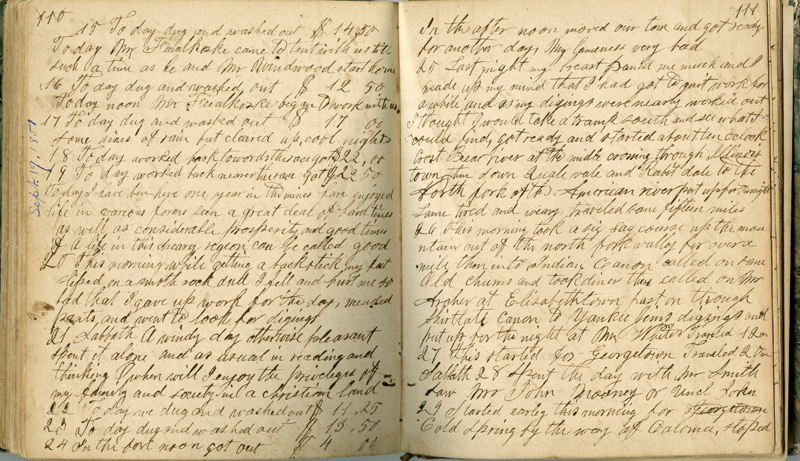 110
15 To day dug and washed out $ 14,50
To day Mr came to tent with us th
such a time as he and Mr Windwood start home
16 To day dug and washed out $ 12 50
To day noon Mr began to work with us
17 To day dug and washed out $ 17 00
some sines of rain but cleared up, cool nights
18 To day worked back towards the race got $22,00
19 To day worked back nearer the race got $22 50
Sept. 19. 1851
To day I have ben here one year in the mines have injoyed
life in various forms seen a great deal of hard times
as well as considerable prosperity and good times
if a life in this dreary region can be called good
20 This morning while getting a back stick my foot
sliped on a smoth rock and I fell and hurt me so
bad that I gave up work for the day, mended
pants, and went to look for digings
21 Sabbath A windy day otherwise pleasant
spent it alone and as usual in reading and
thinking O when will I enjoy the priveleges of
my family and society in a christian land
22 To day we dug and washed out $ 11,25
23 To day dug and washed out $ 13,50
24 In the fore noon got out $ 4 00
111
In the after noon moved our tom and got ready
for another day My lameness very bad
25 Last night my breast pained me much and I
made up my mind that I had got to quit work for
a while and as my digings were nearly worked out
I thought I would take a tramp south and see what I
could find, got ready and started about ten oclock
Crost Bear river at the mule crossing through Illinois
town then down Quale vale and Rabit dale to the
North fork of the American river put up for the night
Lame tired and weary, traveled some fifteen miles
26 This morning took a zig zag course up the mou
ntain out of the north fork valley for over a
mile then into Indian Canon called on some
old chums and took diner then called on Mr
Archer at Elisabethtown past on through
Shirttale canon to Yankee Jims digings and
put up for the night at Mr Traveled 12 m
27 this started for Georgetown Traveled 2
Sabath 28 Spent the day with Mr Smith
saw Mr John Mooney or Uncl John
29 Started early this morning for
Cold Spring by the way of Caloma, stoped